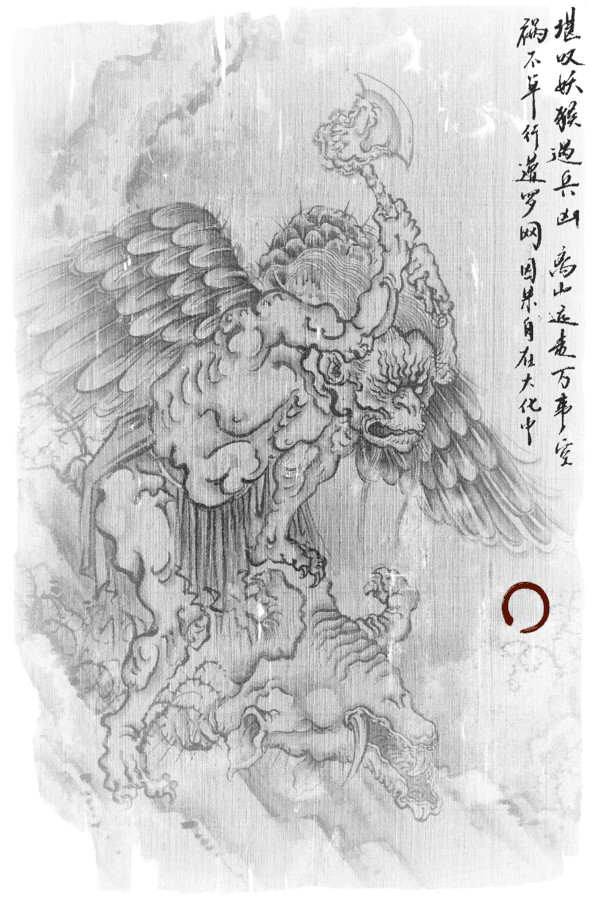 堪叹妖猴遇兵凶 离山远走万事空
祸不单行遭罗网 因果自在大化中